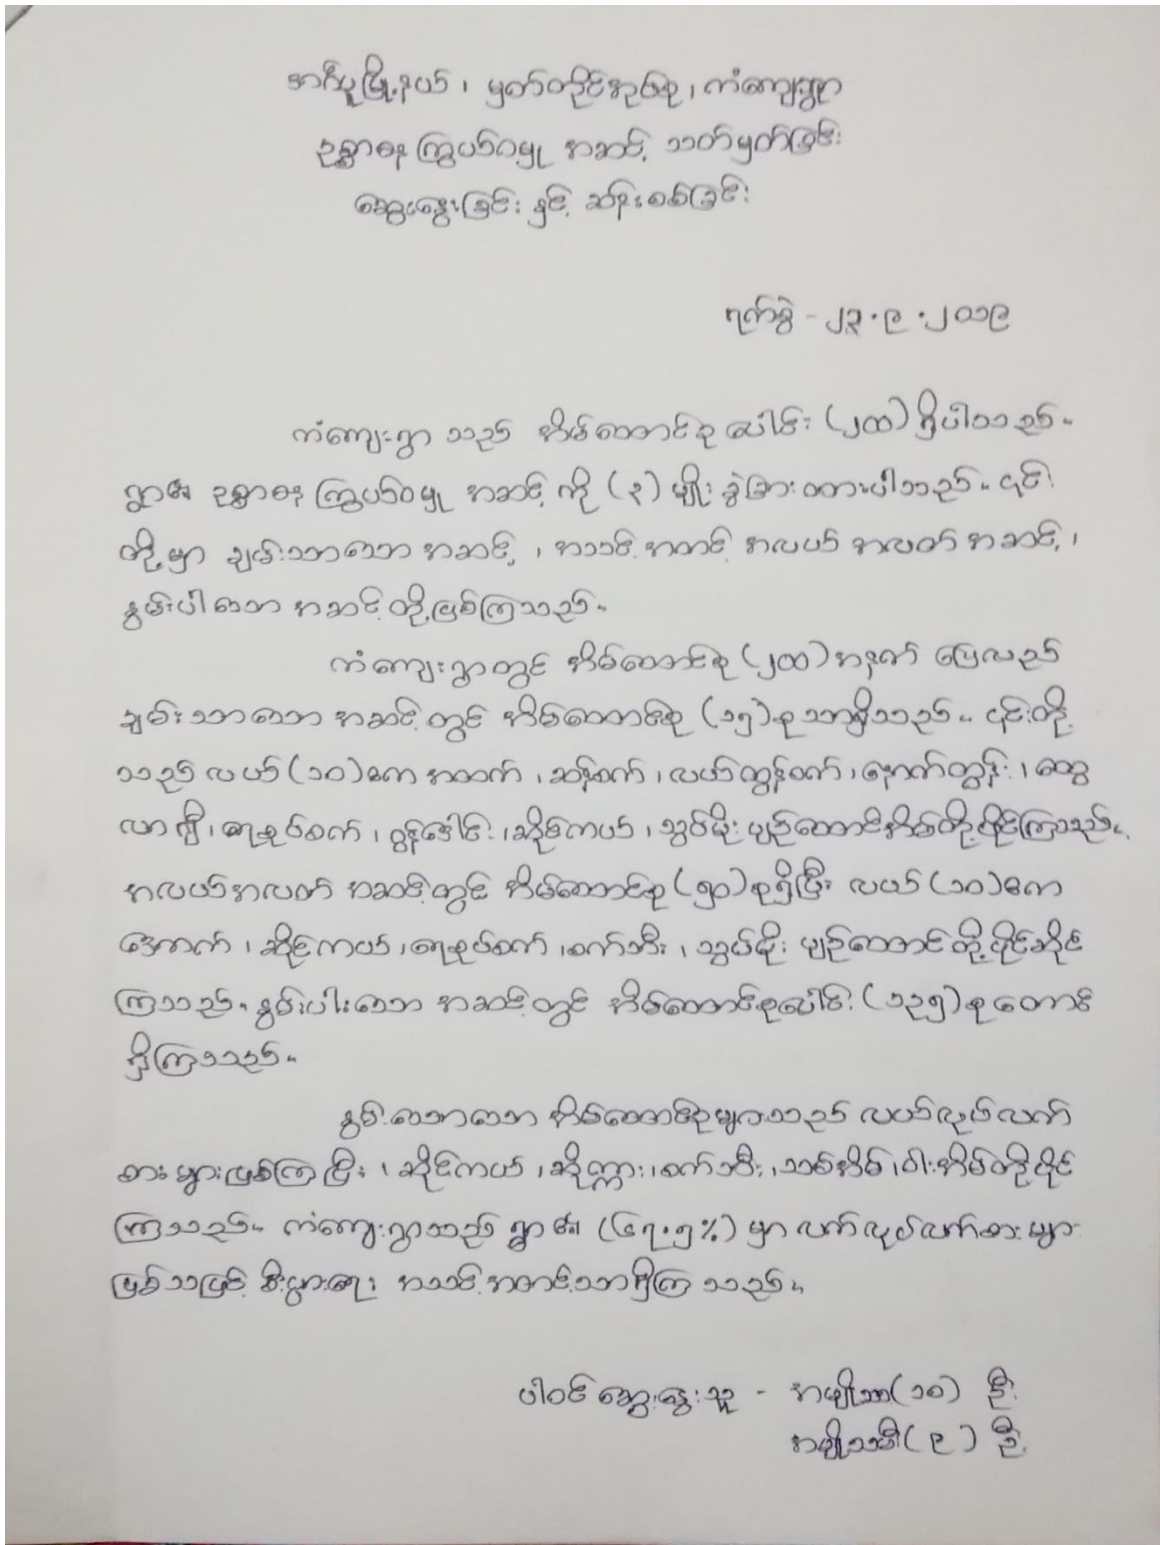 အင်္ဂပူမြို့နယ်၊ မှတ်တိုင်အုပ်စု၊ ကံကျေးရွာ
ဥစ္စာဓန ကြွယ်ဝမှု အဆင့် သတ်မှတ်ခြင်း
ဆွေးနွေးခြင်း နှင့် ဆန်းစစ်ခြင်း
ရက်စွဲ - ၂၃.၉.၂၀၁၉
ကံကျေးရွာ သည် အိမ်ထောင်စု ပေါင်း (၂၀၀) ရှိပါသည်။
ရွာ၏ ဥစ္စာဓန ကြွယ်ဝမှု အဆင့် ကို (၃) မျိုး ခွဲခြား ထားပါသည်။ ၎င်း
တို့မှာ ချမ်းသာသော အဆင့်၊ အသင့်အတင့် အလယ် အလတ် အဆင့်၊
နွမ်းပါသော အဆင့်တို့ဖြစ်ကြသည်။
ကံကျေးရွာတွင် အိမ်ထောင်စု (၂၀၀) အနက် ပြေလည်
ချမ်းသာသော အဆင့်တွင် အိမ်ထောင်စု (၁၅) စုသာရှိသည်။ ၎င်းတို့
သည် လယ် (၁၀) ဧက အထက်၊ ဆန်စက်၊ လယ်ထွန်စက်၊ နောက်တွန်း၊ ထွေ
လာဂျီ၊ ရေစုပ်စက်၊ ဂွန်ဒေါင်း၊ ဆိုင်ကယ်၊ သွပ်မိုး ပျဉ်ထောင်အိမ်တို့ပိုင်ကြသည်။
အလယ်အလတ် အဆင့်တွင် အိမ်ထောင်စု (၅၀) စုရှိပြီး လယ် (၁၀) ဧက
အောက်၊ ဆိုင်ကယ်၊ ရေစုပ်စက်၊ စက်ဘီး၊ သွပ်မိုး ပျဉ်ထောင်တို့ပိုင်ဆိုင်
ကြသည်။ နွမ်းပါးသော အဆင့်တွင် အိမ်ထောင်စုပေါင်း (၁၃၅) စု တောင်
ရှိကြသည်။
နွမ်းသောသော အိမ်ထောင်စုများသည် လယ်လုပ်လက်
စားများဖြစ်ကြပြီး၊ ဆိုင်ကယ်၊ ဆိုက္ကား၊ စက်ဘီး၊ သစ်အိမ်၊ ဝါးအိမ်တို့ပိုင်
ကြသည်။ ကံကျေးရွာသည် ရွာ၏ (၆၇.၅%) မှာ လက်လုပ်လက်စားများ
ဖြစ်သဖြင့် စီးပွားရေး အသင့်အတင့်သာရှိကြ သည်။
ပါဝင်ဆွေးနွေးသူ - အမျိုးသား(၁၈) ဦး
အမျိုးသမီး(၉) ဦး